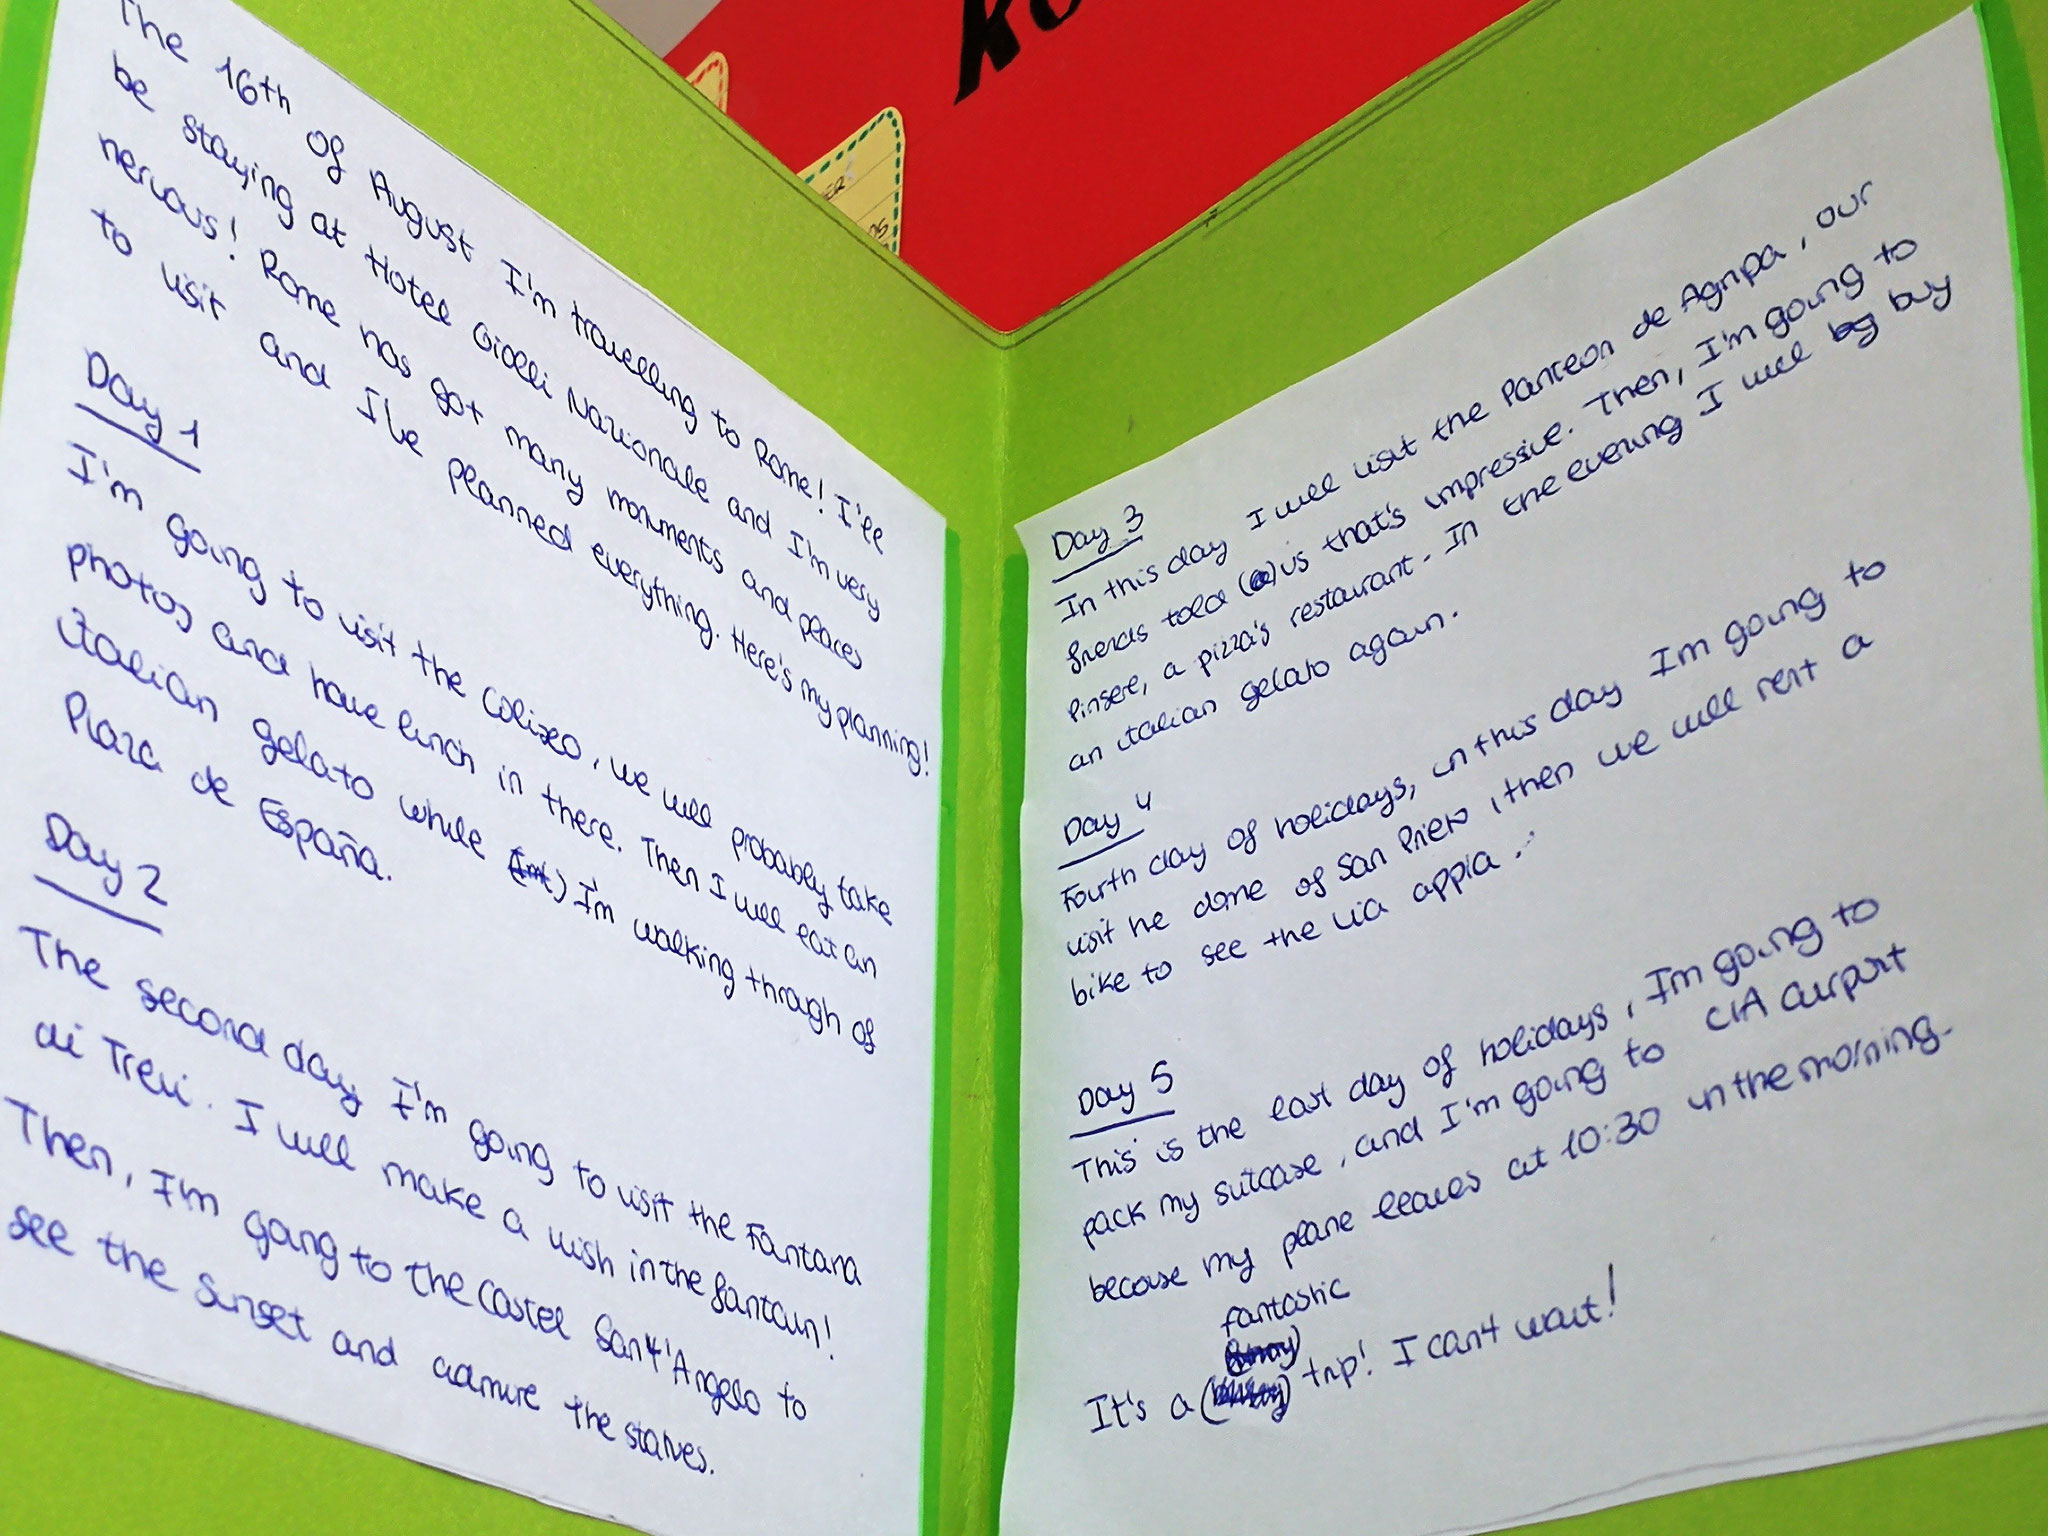 The 16th of August I'm travelling to Rome! I'll
be staying at Hotel Giolli Nazionale and I'm very
nervous! Rome has got many monuments and places
to visit and I've planned everything. Here's my planning!
Day 1
I'm going to visit the Colizeo, we will probably take
photos and have lunch in there. Then I will eat an
italian gelato while I'm walking through of
Plaza de España.
Day 2
The second day I'm going to visit the Fontana
di Trevi. I will make a wish in the fontain!
Then, I'm going to the Castel San4'Angelo to
see the sunset and admire the statues.
Ro
Day 3
In this day I will visit the Panteon de Agripa, our
friends told us that's impressive. Then, I'm going to
Pinsere, a pizza's restaurant. In the evening I will buy
an italian gelato again.
Day 4
Fourth day of holidays, in this day Im going to
visit he dome of San Prieto, then we will rent a
bike to see the via appia.
Day 5
This is the last day of holidays, Im going to
pack my suitcase, and I'm going to CIA airport
because my plane leaves at 10:30 in the morning.
fantastic
It's a trip! I can4 wait!